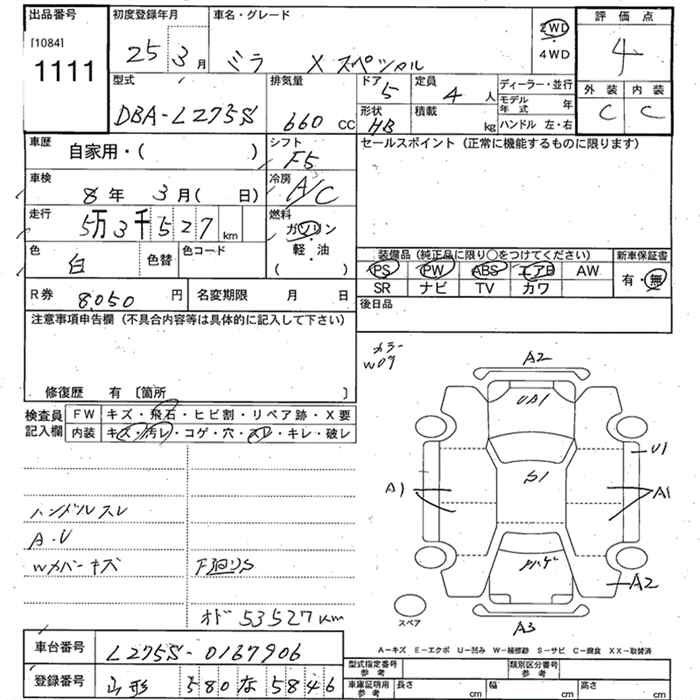 出品番号 初度登録年月 車名・グレード 2WD ・ 4WD 評価点
[1084] 1111 25 3月 ミラ X スペシャル 4
型式 DBA-L275S 排気量 660 CC ドア 5 定員 4 人 ディーラー・並行
形状 HB 積載 kg モデル年式 年 ハンドル 左・右
外装 内装
C C
車歴 自家用・( ) シフト F5 セールスポイント（正常に機能するものに限ります）
車検 8年 3月( 日) 冷房 A/C
走行 5万3千527 km 燃料 ガソリン・軽油 ( )
色 白 色替 色コード
装備品（純正品に限り○をつけてください） 新車保証書
PS PW ABS エアB AW 有・無
SR ナビ TV カワ
R券 8,050 円 名変期限 月 日 後日品
注意事項申告欄（不具合内容等は具体的に記入して下さい）
カラー
W09
修復歴 有 〔箇所 〕
検査員記入欄 FW キズ・飛石・ヒビ割・リペア跡・X要
内装 キズ・汚レ・コゲ・穴・スレ・キレ・破レ
A2
UA1
U1
S1
A1 A1
ハンドルスレ
A・U
Wカバーキズ F廻りS
ハゲ
A2
オド 53527km
スペア
A3
A－キズ E－エクボ U－凹み W－補修跡 S－サビ C－腐食 XX－取替済
車台番号 L275S-0167906
型式指定番号 参考 類別区分番号 参考
登録番号 山形 580 な 5846
車庫証明用 参考 長さ cm 幅 cm 高さ cm